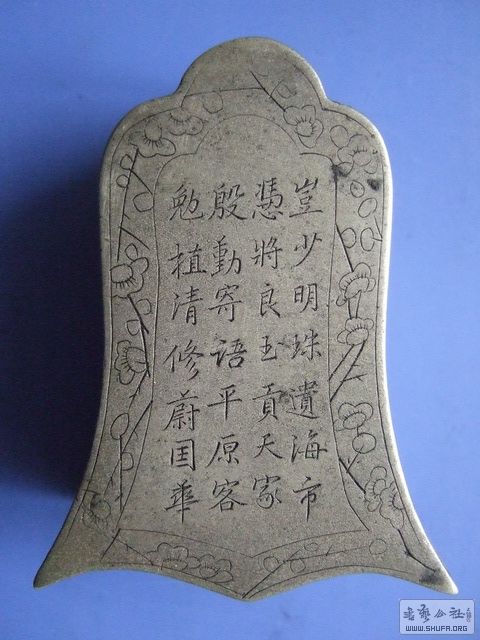 豈少明珠遺海市
憑將良玉貢天家
殷勤寄語平原客
勉植清修蔚囯華
书艺公社
WWW.SHUFA.ORG